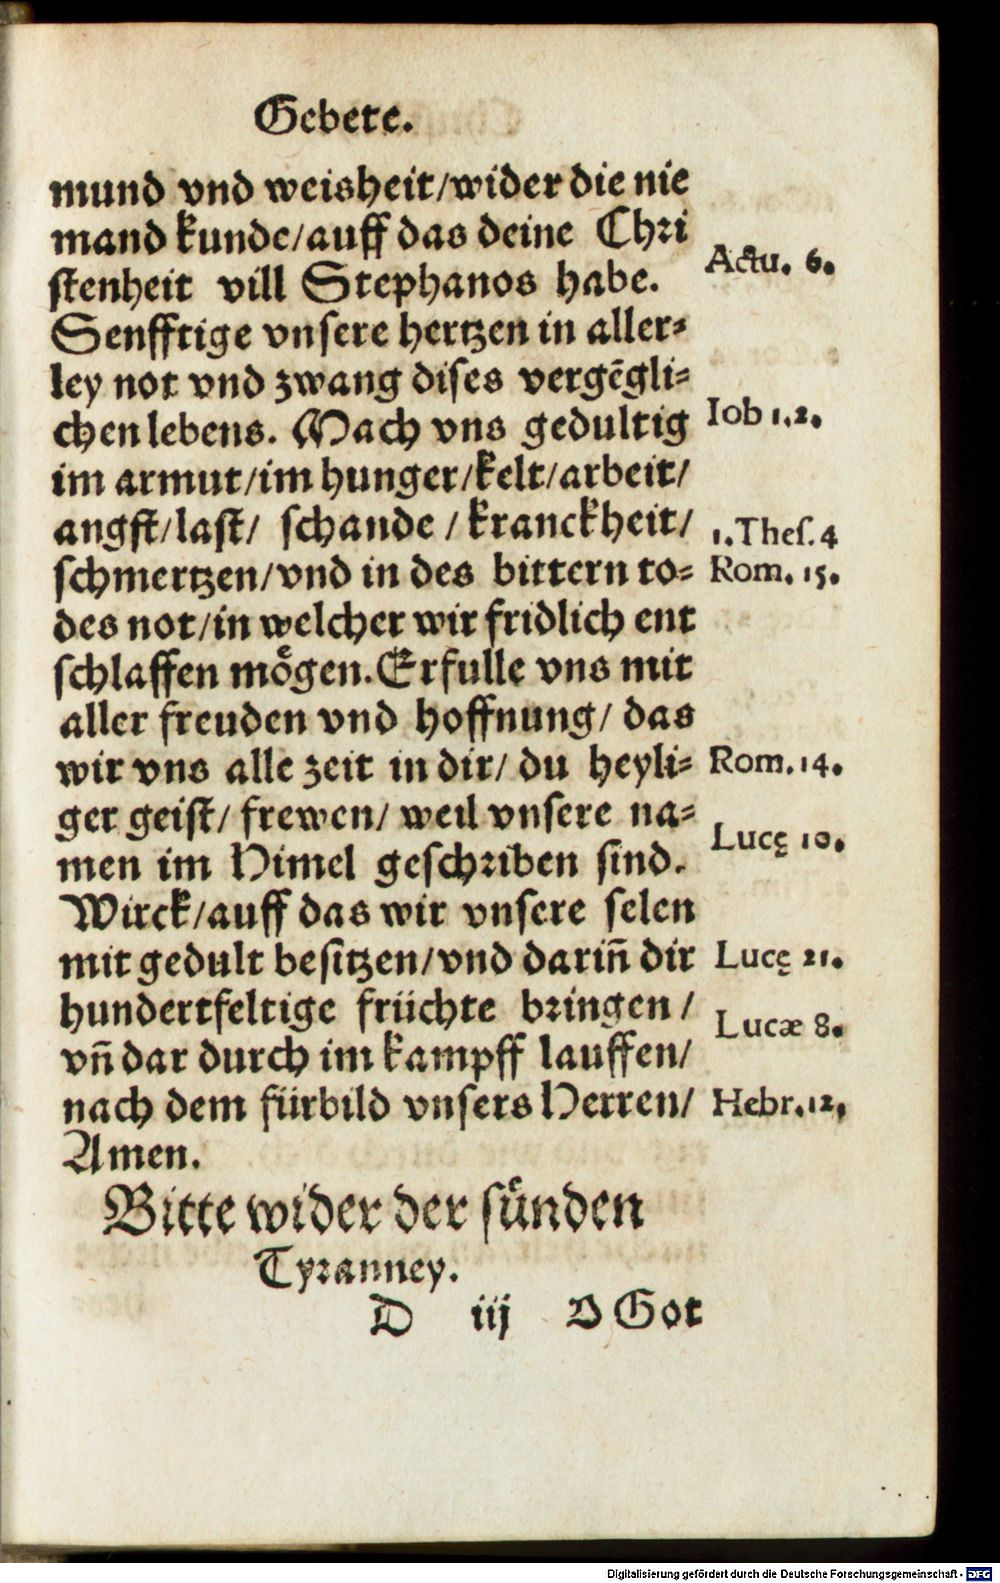 Gebete.
mund vnd weisheit/wider die nie
mand kunde/auff das deine Chri
stenheit vill Stephanos habe.
Actu. 6.
Senfftige vnsere hertzen in aller⸗
ley not vnd zwang dises vergẽgli⸗
chen lebens. Mach vns gedultig
Iob 1.2.
im armut/im hunger/kelt/arbeit/
angst/last/ schande / kranckheit/
1.Thes.4
schmertzen/vnd in des bittern to⸗
Rom. 15.
des not/in welcher wir fridlich ent
schlaffen moͤgen.Erfulle vns mit
aller freuden vnd hoffnung/ das
wir vns alle zeit in dir/ du heyli⸗
Rom.14.
ger geist/ frewen/ weil vnsere na⸗
men im Himel geschriben sind.
Lucę 10.
Wirck/auff das wir vnsere selen
mit gedult besitzen/vnd dariñ dir
Lucę 21.
hundertfeltige früchte bringen /
Lucæ 8.
vñ dar durch im kampff lauffen/
nach dem fürbild vnsers Herren/
Hebr.12.
Amen.
Bitte wider der sünden
Tyranney.
D iij O Got
Digitalisierung gefördert durch die Deutsche Forschungsgemeinschaft - DFG